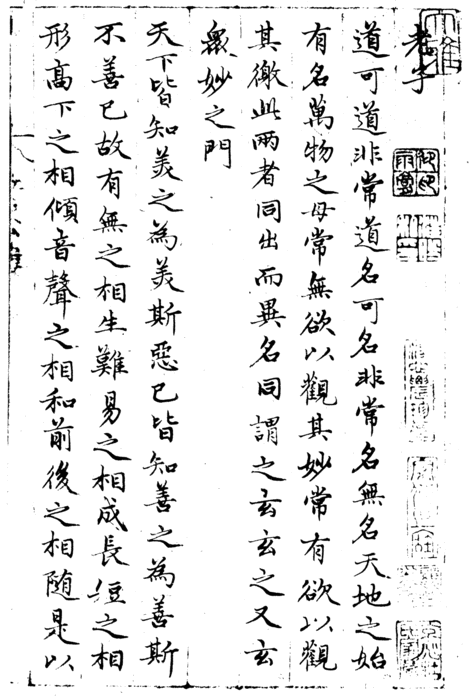 老子
道可道非常道名可名非常名無名天地之始
有名萬物之母常無欲以觀其妙常有欲以觀
其徼此兩者同出而異名同謂之玄玄之又玄
衆妙之門
天下皆知美之為美斯惡已皆知善之為善斯
不善已故有無之相生難易之相成長短之相
形高下之相傾音聲之相和前後之相随是以